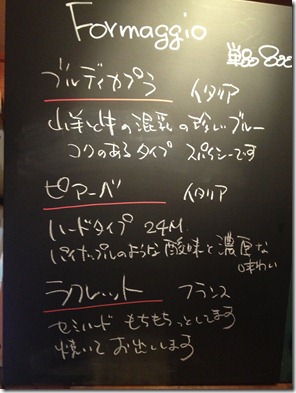 Formaggio
単品 800
ブルディカプラ イタリア
山羊と牛の混乳の珍しいブルー
コクのあるタイプ スパイシーです
ピアーベ イタリア
ハードタイプ 24M
パイナップルのような酸味と濃厚な
味わい
ラクレット フランス
セミハード もちもちっとしてます
焼いてお出しします